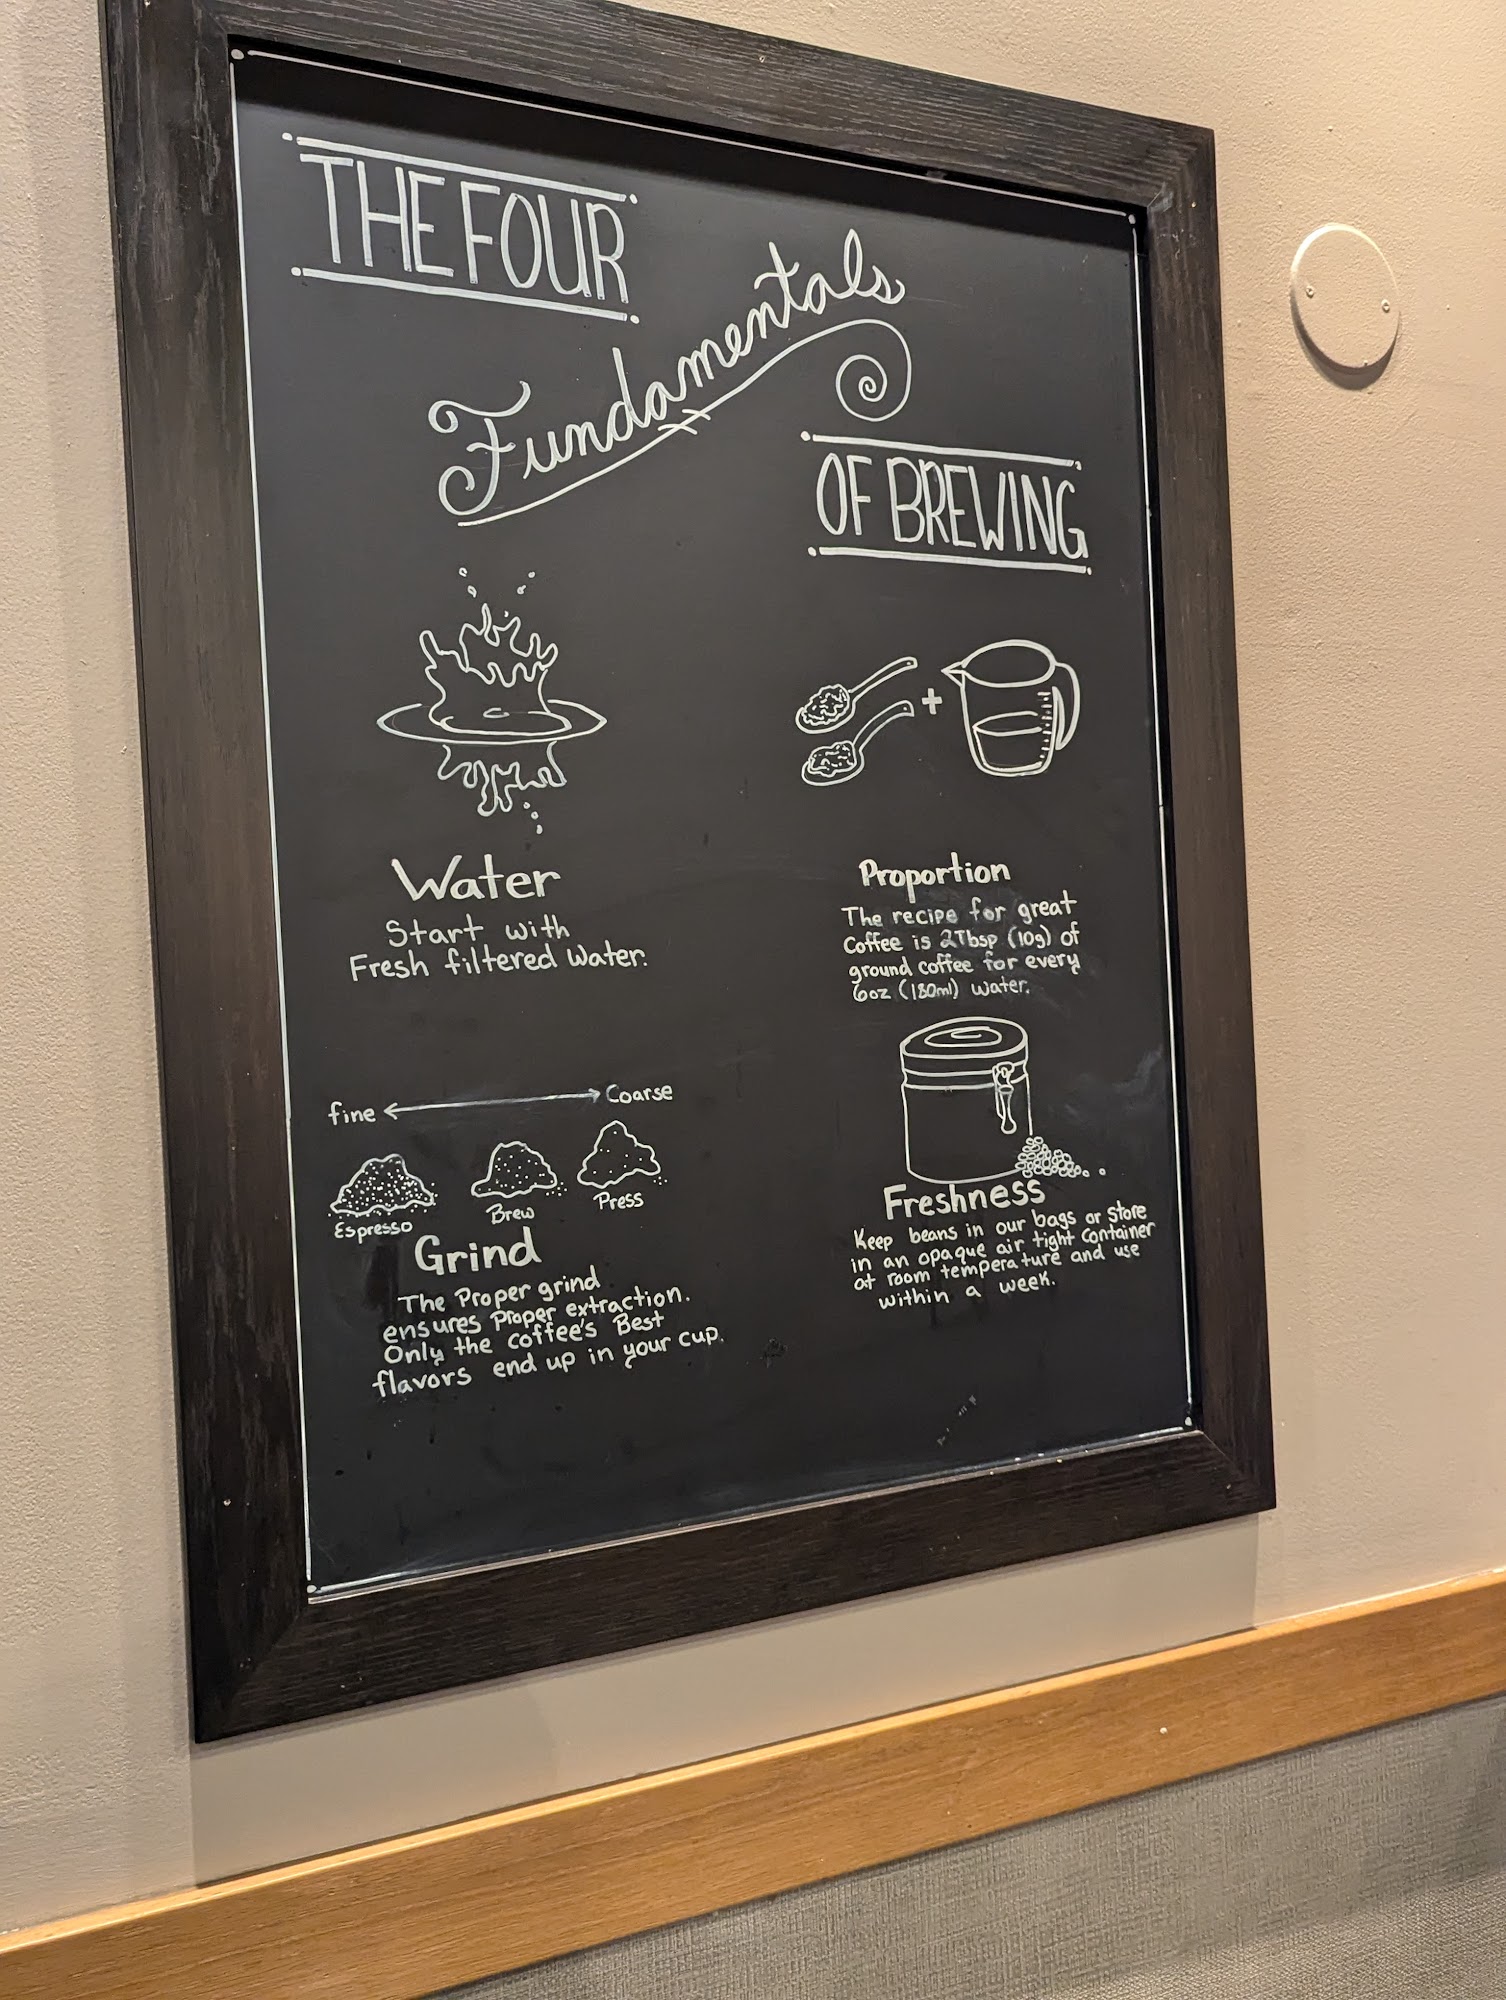 THE FOUR
Fundamentals
OF BREWING
+
Water
Start with
Fresh filtered Water.
Proportion
The recipe for great
Coffee is 2Tbsp (10g) of
ground coffee for every
6oz (180ml) Water.
fine Coarse
Espresso Brew Press
Grind
The Proper grind
ensures Proper extraction.
Only the coffee's Best
flavors end up in your cup.
Freshness
Keep beans in our bags or Store
in an opaque air tight container
at room temperature and use
within a week.